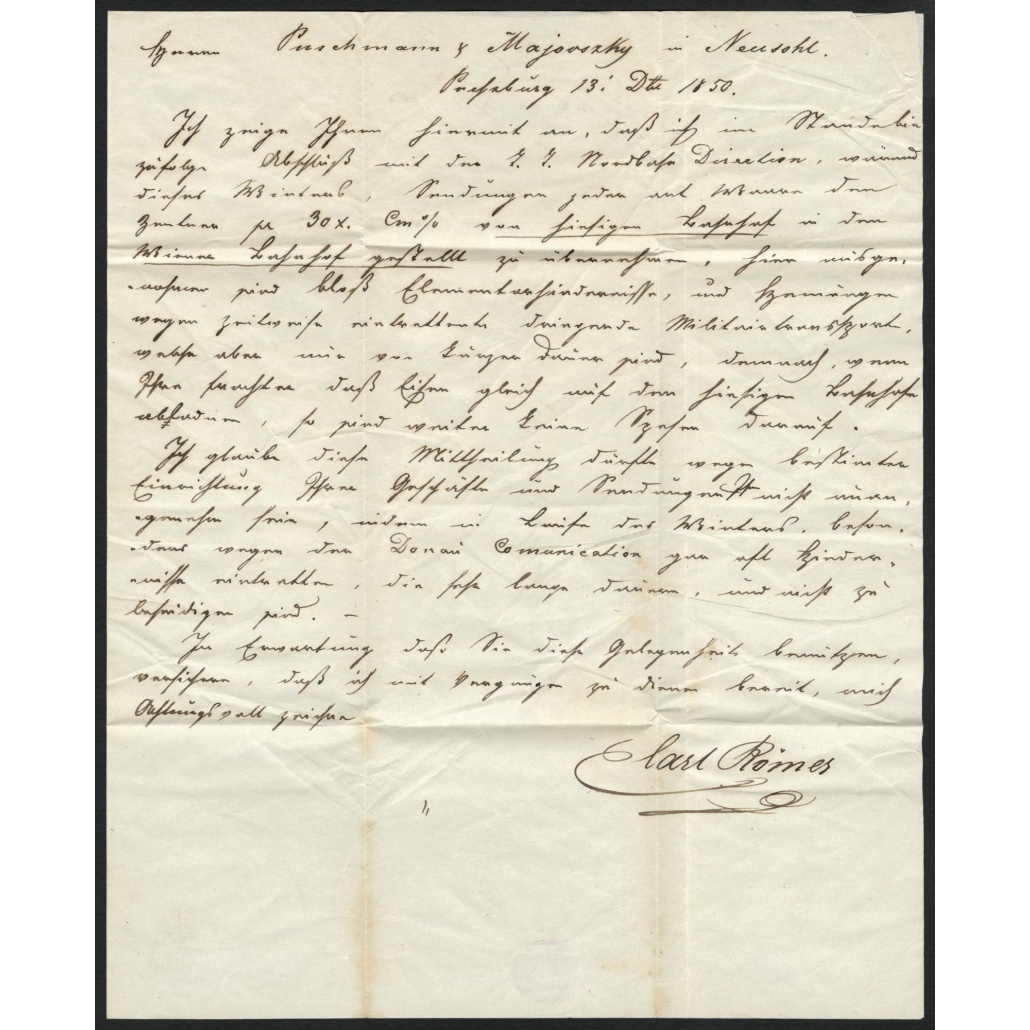 Herren Puschmann & Majovszky in Neusohl.
Preßburg 13: Dbr 1850.
Ich zeige Ihnen hiermit an, daß ich im Stande bin
zufolge Abschluß mit der K. K. Nordbahn Direction, wärend
dieses Winters, Sendungen jeder art Waare den
Zentner pr 30 x. Cm% von hiesigen Bahnhof in den
Wiener Bahnhof gestellt zu übernehmen, hier ausge-
-nohmen sind bloß Elementarhindernisse, und Hemungen
wegen zeitweise eintrettente dringende Militairtransporte,
welche aber nur von kurzer Dauer sind, demnach, wenn
Ihre frachter daß Eisen gleich auf den hiesigen Bahnhofe
abladen, so sind weiter keine Spesen darauf.
Ich glaube diese Mittheilung dürfte wegen bestimter
Einrichtung Ihrer Geschäfte und Sendungen nicht unan-
-genehm sein, indem in Laufe des Winters, beson-
-ders wegen der Donau Comunication gar oft Hinder-
-nisse eintretten, die sehr lange dauern, und nicht zu
beseidigen sind. –
In Erwartung daß Sie diese Gelegenheit benützen,
versichere, daß ich mit Vergnügen zu dienen bereit, mich
Achtungsvoll zeichne
Carl Römer